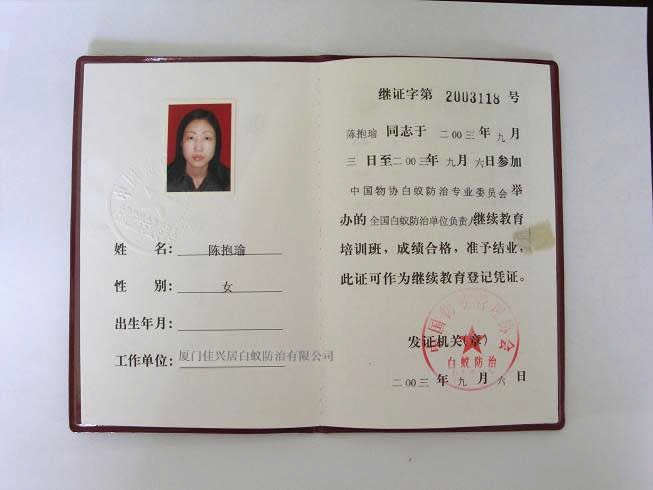 姓 名： 陈抱瑜
性 别： 女
出生年月：
工作单位：厦门佳兴居白蚁防治有限公司
继证字第 2003118 号
陈抱瑜 同志于 二00三 年 九 月
三 日至二00三年 九 月 六 日参加
中国物协白蚁防治专业委员会 举
办的 全国白蚁防治单位负责人 继续教育
培训班，成绩合格，准予结业，
此证可作为继续教育登记凭证。
发证机关（章）
白蚁防治
二00三 年 九 月 六 日